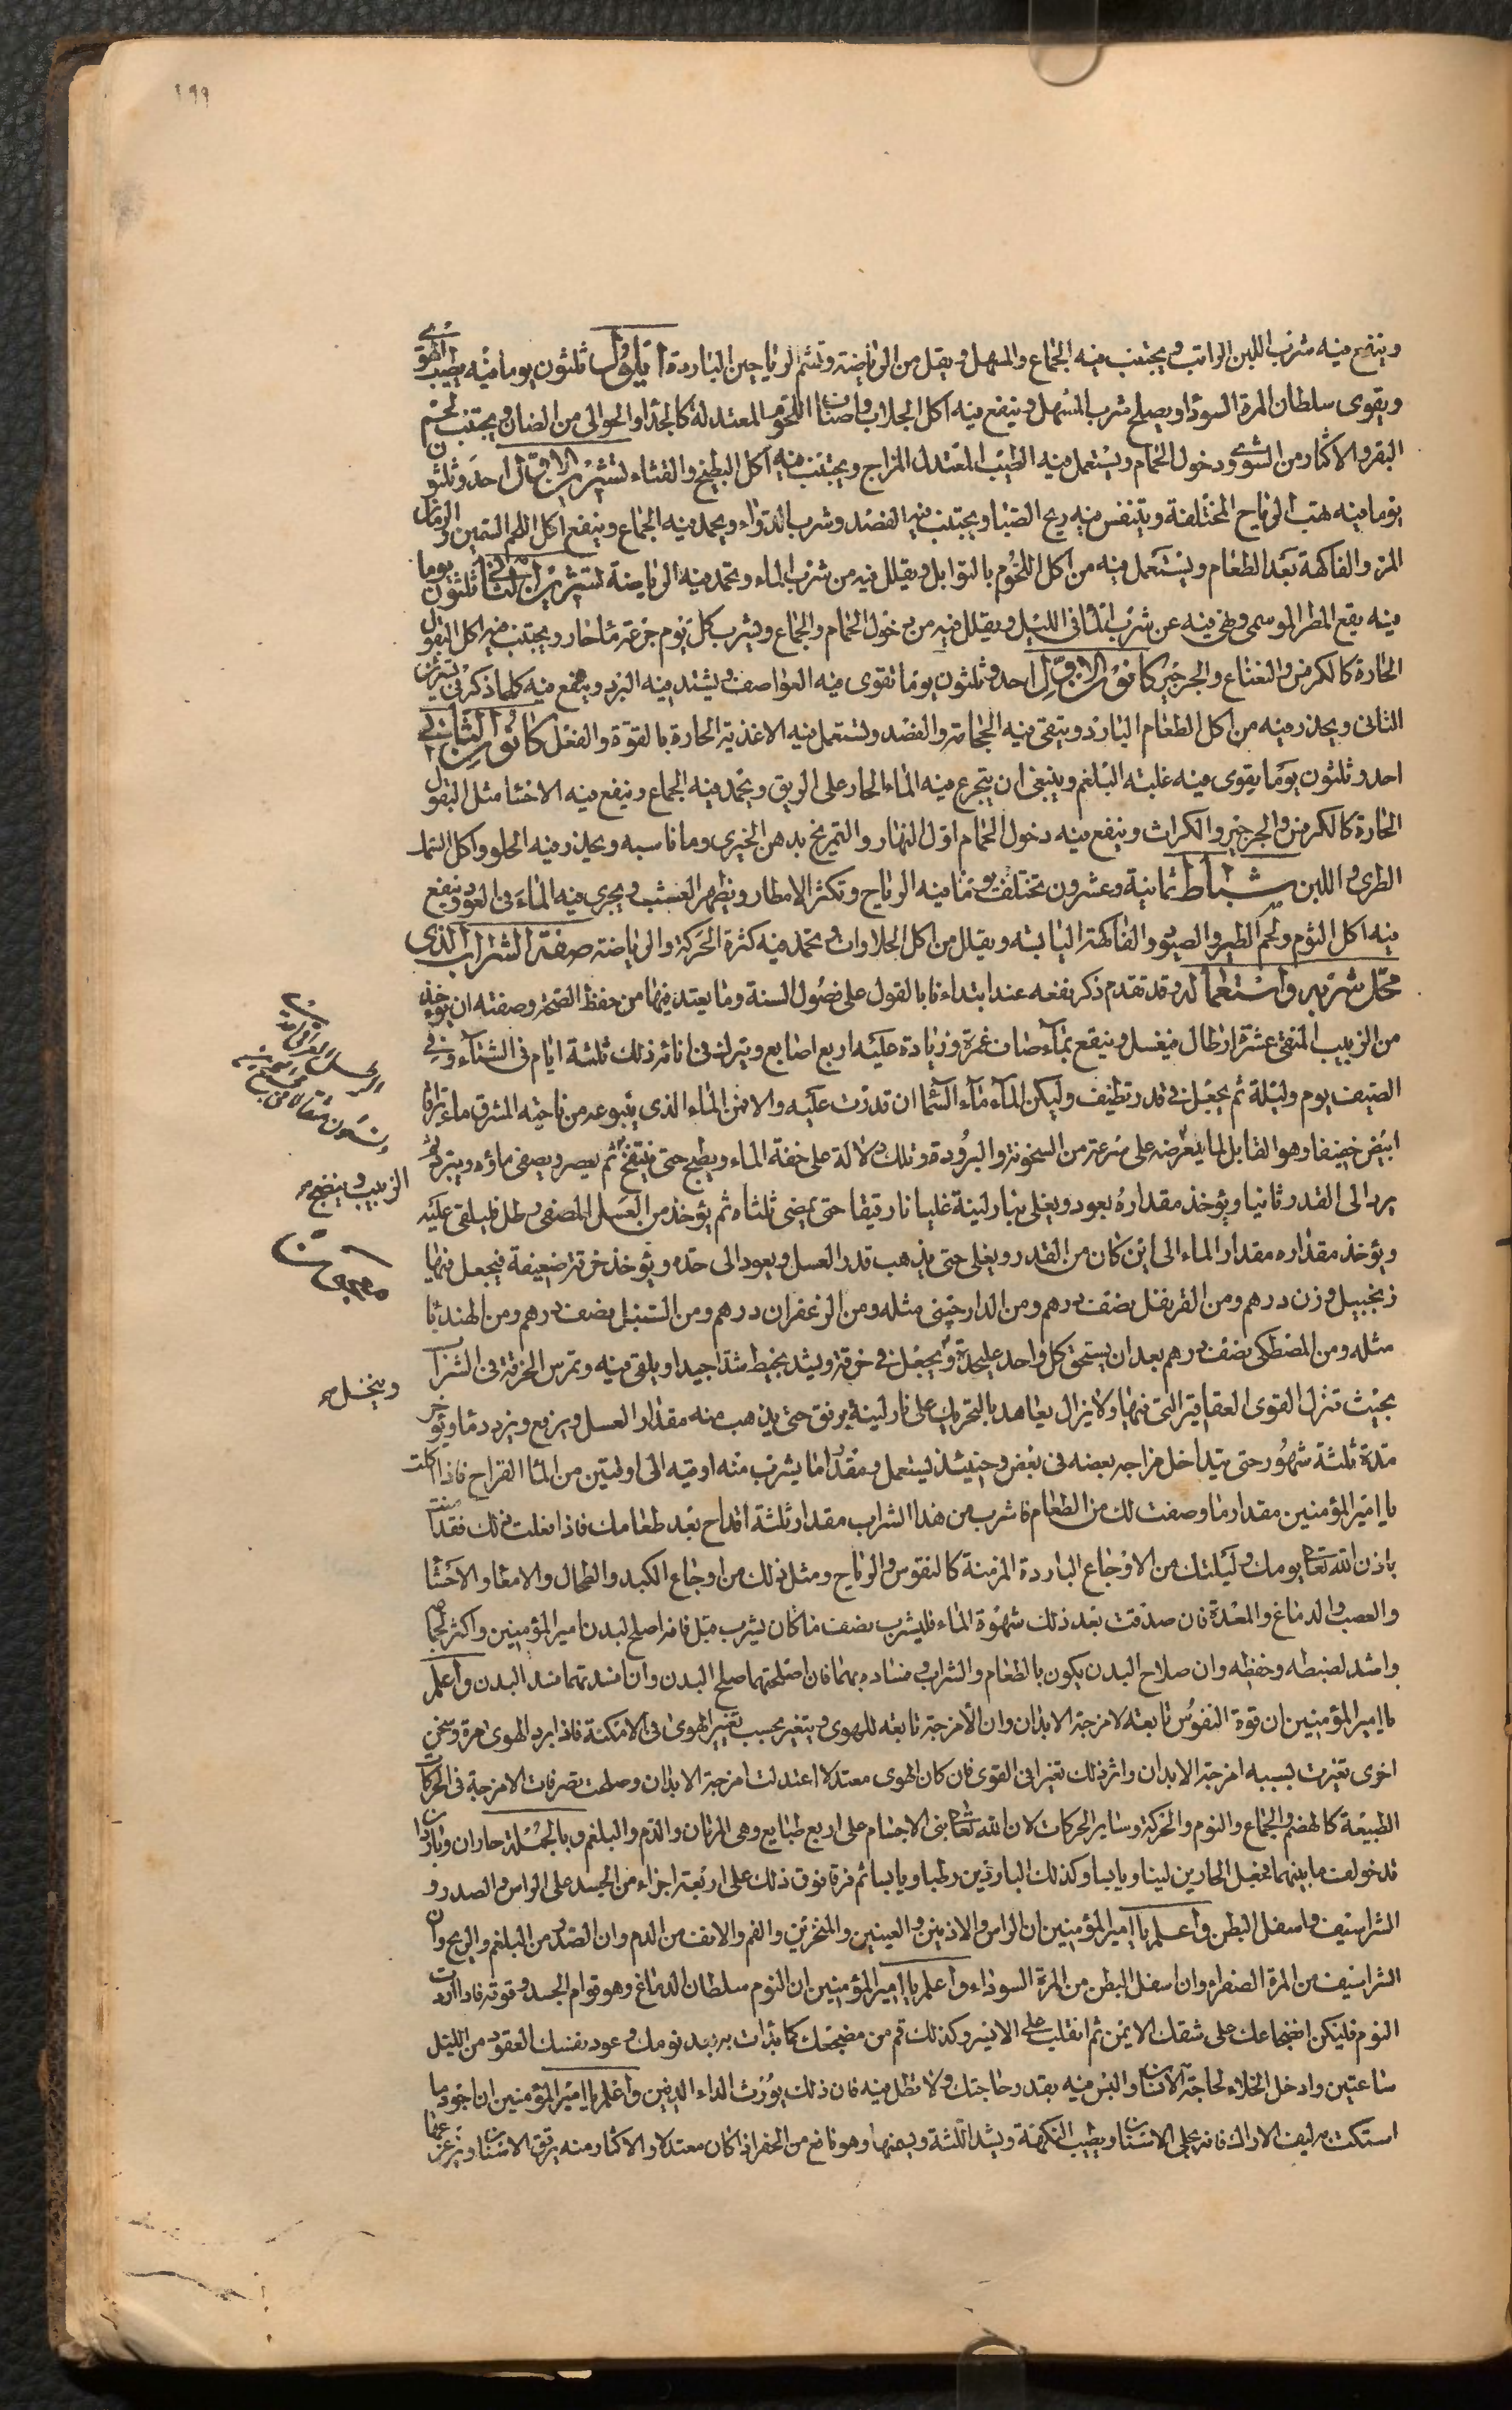 ١٩٩
وينفع فيه شرب اللبن الرائب ويجتنب فيه الجماع والمسهل ويقل من الرياضة وتشم الرياحين الباردة ايلول ثلثون يوما فيه يطيب الهوى
ويقوى سلطان المرة السودا ويصلح شرب المسهل وينفع فيه اكل الحلاوات واصناف اللحوم المعتدلة كالجدا والحوالى من الضان ويجتنب لحم
البقر والاكثار من الشوى ودخول الحمام ويستعمل فيه الطيب المعتدل المزاج ويجتنب فيه اكل البطيخ والقثاء تشرين الاول احد وثلثون
يوما فيه تهب الرياح المختلفة ويتنفس فيه ريح الصبا ويجتنب فيه الفصد وشرب الدواء ويحمد فيه الجماع وينفع اكل اللحم السمين والرمان
المز والفاكهة بعد الطعام ويستعمل فيه من اكل اللحوم بالتوابل ويقلل فيه من شرب الماء وتحمد فيه الرياضة تشرين الثانى ثلثون يوما
فيه يقع المطر الموسمى ونهى فيه عن شرب الماء فى الليل ويقلل فيه من دخول الحمام والجماع ويشرب كل يوم جرعة ماء حار ويجتنب فيه اكل البقول
الحارة كالكرفس والنعناع والجرجير كانون الاول احد وثلثون يوما تقوى فيه العواصف ويشتد فيه البرد وينفع فيه كلما ذكر فى تشرين
الثانى ويحذر فيه من اكل الطعام البارد ويتقى فيه الحجامة والفصد وتستعمل فيه الاغذية الحارة بالقوة والفعل كانون الثانى
احد وثلثون يوما يقوى فيه غلبة البلغم وينبغى ان يتجرع فيه الماء الحار على الريق ويحمد فيه الجماع وينفع فيه الاحشا مثل البقول
الحارة كالكرفس والجرجير والكراث وينفع فيه دخول الحمام اول النهار والتمريخ بدهن الخيرى وما ناسبه ويحذر فيه الحلو واكل السمك
الطرى واللبن شباط ثمانية وعشرون يوما تختلف فيه الرياح وتكثر الامطار ويظهر العشب ويجرى فيه الماء فى العود وينفع
فيه اكل الثوم ولحم الطير والصيود والفاكهة اليابسة ويقلل من اكل الحلاوات وتحمد فيه كثرة الحركة والرياضة صفة الشراب الذى
محل شربه واستعماله وقد تقدم ذكر نفعه عند ابتداءنا بالقول على فصول السنة وما يعتمد فيها من حفظ الصحة وصفته ان يؤخذ
من الزبيب المنقى عشرة ارطال فيغسل وينقع بماء صاف غمرة وزيادة عليه اربع اصابع ويترك فى انائه ذلك ثلثة ايام فى الشتاء وفى
الصيف يوم وليلة ثم يجعل فى قدر نظيف وليكن الماء ماء السما ان قدرت عليه والا فمن الماء الذى ينبوعه من ناحية المشرق ماء براقا
ابيض خفيفا وهو القابل لما يعرضه على سرعة من السخونة والبرودة وتلك دلالة على خفة الماء ويطبخ حتى ينتفخ ثم يعصر ويصفى ماؤه ويبرد ثم
يرد الى القدر ثانيا ويؤخذ مقداره بعود ويغلى بنار لينة غليانا رقيقا حتى يمضى ثلثاه ثم يؤخذ من العسل المصفى رطل فيلقى عليه
ويؤخذ مقداره مقدار الماء الى اين كان من القدر ويغلى حتى يذهب قدر العسل ويعود الى حده ويؤخذ خرقة ضعيفة فيجعل فيها
زنجبيل وزن درهم ومن القرنفل نصف درهم ومن الدارچينى مثله ومن الزعفران درهم ومن السنبل نصف درهم ومن الهندبا
مثله ومن المصطكى نصف درهم بعد ان يسحق كل واحد عليحدة ويجعل فى خرقة ويشد بخيط شدا جيدا ويلقى فيه وتمرس الخرقة فى الشراب
بحيث تنزل القوى العقاقير التى فيها ولا يزال يعاهد بالتحريك على نار لينة برفق حتى يذهب منه مقدار العسل ويرفع ويبرد ويؤخر
مدة ثلثة شهور حتى يتداخل مزاجه بعضه فى بعض وحينئذ يستعمل ومقدار ما يشرب منه اوقية الى اوقيتين من الماء القراح فاذا اكلت
يا امير المؤمنين مقدار ما وصفت لك من الطعام فاشرب من هذا الشراب مقدار ثلثة اقداح بعد طعامك فاذا فعلت ذلك فقد امنت
باذن الله تعا يومك وليلتك من الاوجاع الباردة المزمنة كالنقرس والرياح ومثل ذلك من اوجاع الكبد والطحال والامعاء والاحشا
والعصب والدماغ والمعدة فان صدقت بعد ذلك شهوة الماء فليشرب نصف ما كان يشرب قبل فانه اصلح لبدن امير المؤمنين واكثر لجماعه
واشد لضبطه وحفظه وان صلاح البدن يكون بالطعام والشراب وفساده بهما فان اصلحتهما صلح البدن وان افسدتهما فسد البدن واعلم
يا امير المؤمنين ان قوة النفوس تابعة لامزجة الابدان وان الامزجة تابعة للهوى ويتغير بحسب تغير الهوى فى الامكنة فاذا برد الهوى مرة وسخن
اخرى تغيرت بسببه امزجة الابدان واثر ذلك تغيرا فى القوى فان كان الهوى معتدلا اعتدلت امزجة الابدان وصلحت تصرفات الامزجة فى الحركات
الطبيعة كالهضم والجماع والنوم والحركة وسائر الحركات لان الله تعا بنى الاجسام على اربع طبايع وهى المرتان والدم والبلغم وبالجملة حاران وباردان
قد خولف ما بينهما فجعل الحارين لينا ويابسا وكذلك الباردين رطبا ويابسا ثم فرق فوق ذلك على اربعة اجزاء من الجسد على الراس والصدر و
الشراسيف واسفل البطن واعلم يا امير المؤمنين ان الراس والاذنين والعينين والمنخرين والفم والانف من الدم وان الصدر من البلغم والريح وان
الشراسيف من المرة الصفراء وان اسفل البطن من المرة السوداء واعلم يا امير المؤمنين ان النوم سلطان الدماغ وهو قوام الجسد وقوته فاذا اردت
النوم فليكن اضطجاعك على شقك الايمن ثم انقلب على الايسر وكذلك قم من مضجعك كما بدات به بعد نومك وعود نفسك العقود من الليل
ساعتين وادخل الخلاء لحاجة الانسان والبث فيه بقدر حاجتك ولا تطل فيه فان ذلك يورث الداء الدفين واعلم يا امير المؤمنين ان اجود ما
استكت به ليف الاراك فانه يجلى الاسنان ويطيب النكهة ويشد اللثة ويسمنها وهو نافع من الحفر اذا كان معتدلا والاكثار منه يرق الاسنان ويزعزعها
الزبيب وينضج صح
وينخل صح